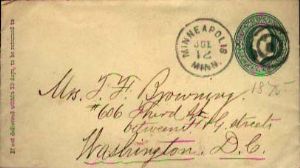 If not delivered within 10 days, to be returned to
MINNEAPOLIS
12
MINN.
1875
Mrs. J. F. Browning
#606 Third St
between F & G streets
Washington, D.C.